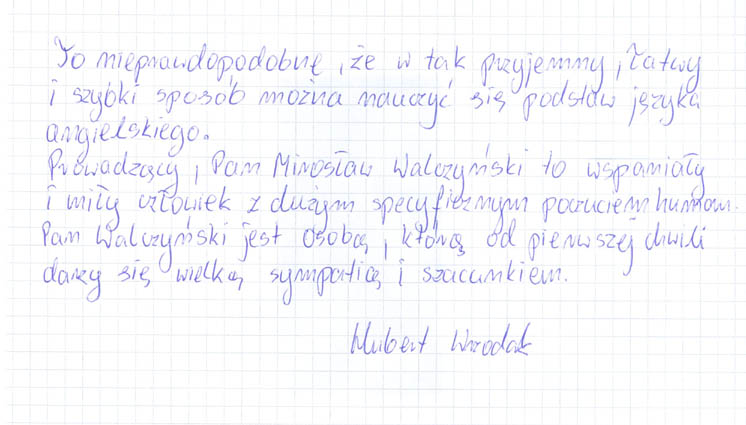 To nieprawdopodobne, że w tak przyjemny, łatwy
i szybki sposób można nauczyć się podstaw języka
angielskiego.
Prowadzący, Pan Mirosław Walczyński to wspaniały
i miły człowiek z dużym specyficznym poczuciem humoru.
Pan Walczyński jest osobą, którą od pierwszej chwili
darzy się wielką sympatią i szacunkiem.
Hubert